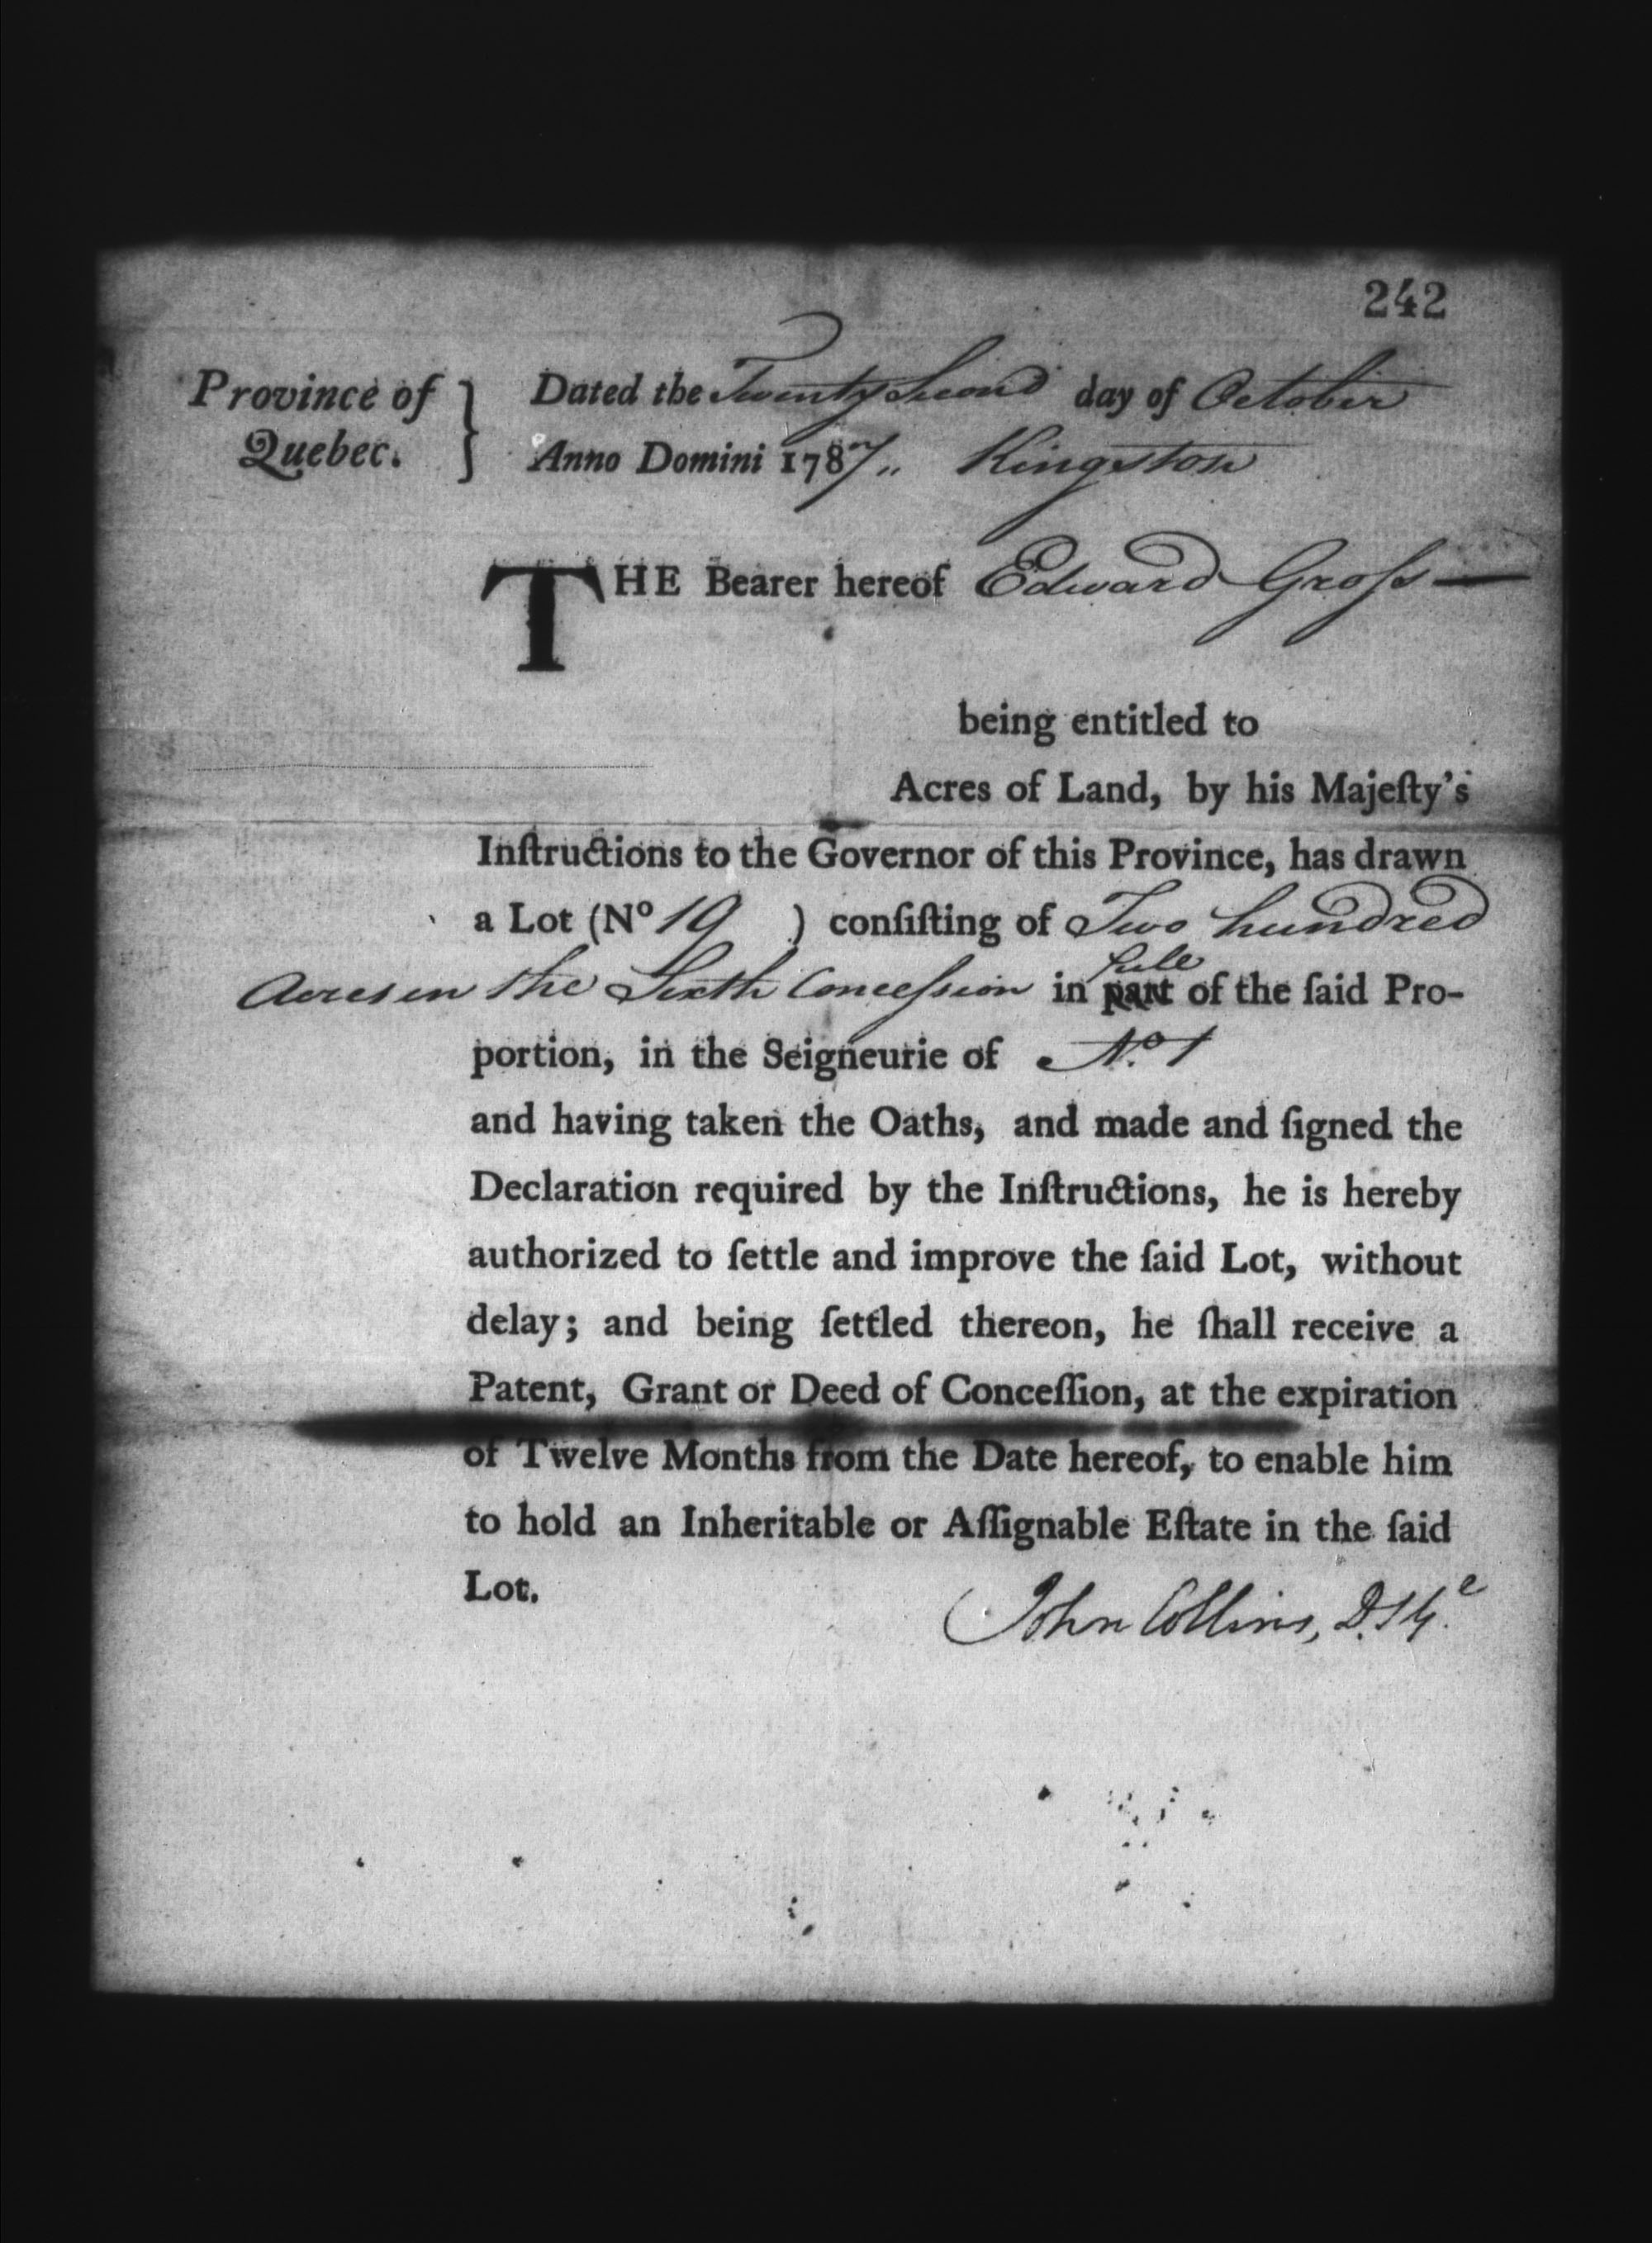 242
Province of Quebec. } Dated the Twenty Second day of October
Anno Domini 1787,, Kingston
THE Bearer hereof Edward Groſs —
being entitled to
Acres of Land, by his Majeſty's
Inſtructions to the Governor of this Province, has drawn
a Lot (Nº 19 ) conſiſting of Two hundred
Acres in the Sixth Conceſsion in part of the ſaid Pro-
portion, in the Seigneurie of Nº 1
and having taken the Oaths, and made and ſigned the
Declaration required by the Inſtructions, he is hereby
authorized to ſettle and improve the ſaid Lot, without
delay; and being ſettled thereon, he ſhall receive a
Patent, Grant or Deed of Conceſſion, at the expiration
of Twelve Months from the Date hereof, to enable him
to hold an Inheritable or Aſſignable Eſtate in the ſaid
Lot.
John Collins, D.